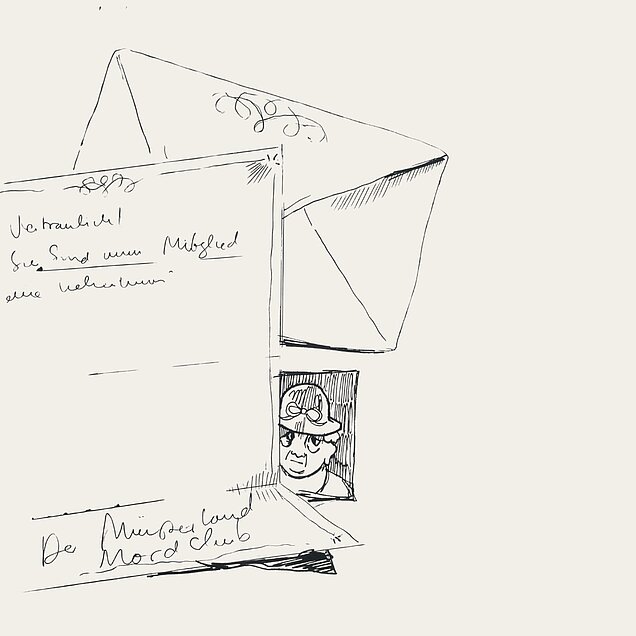 Vertraulich!
Sie Sind nun Mitglied
eine
Der Münsterland
Mord Club